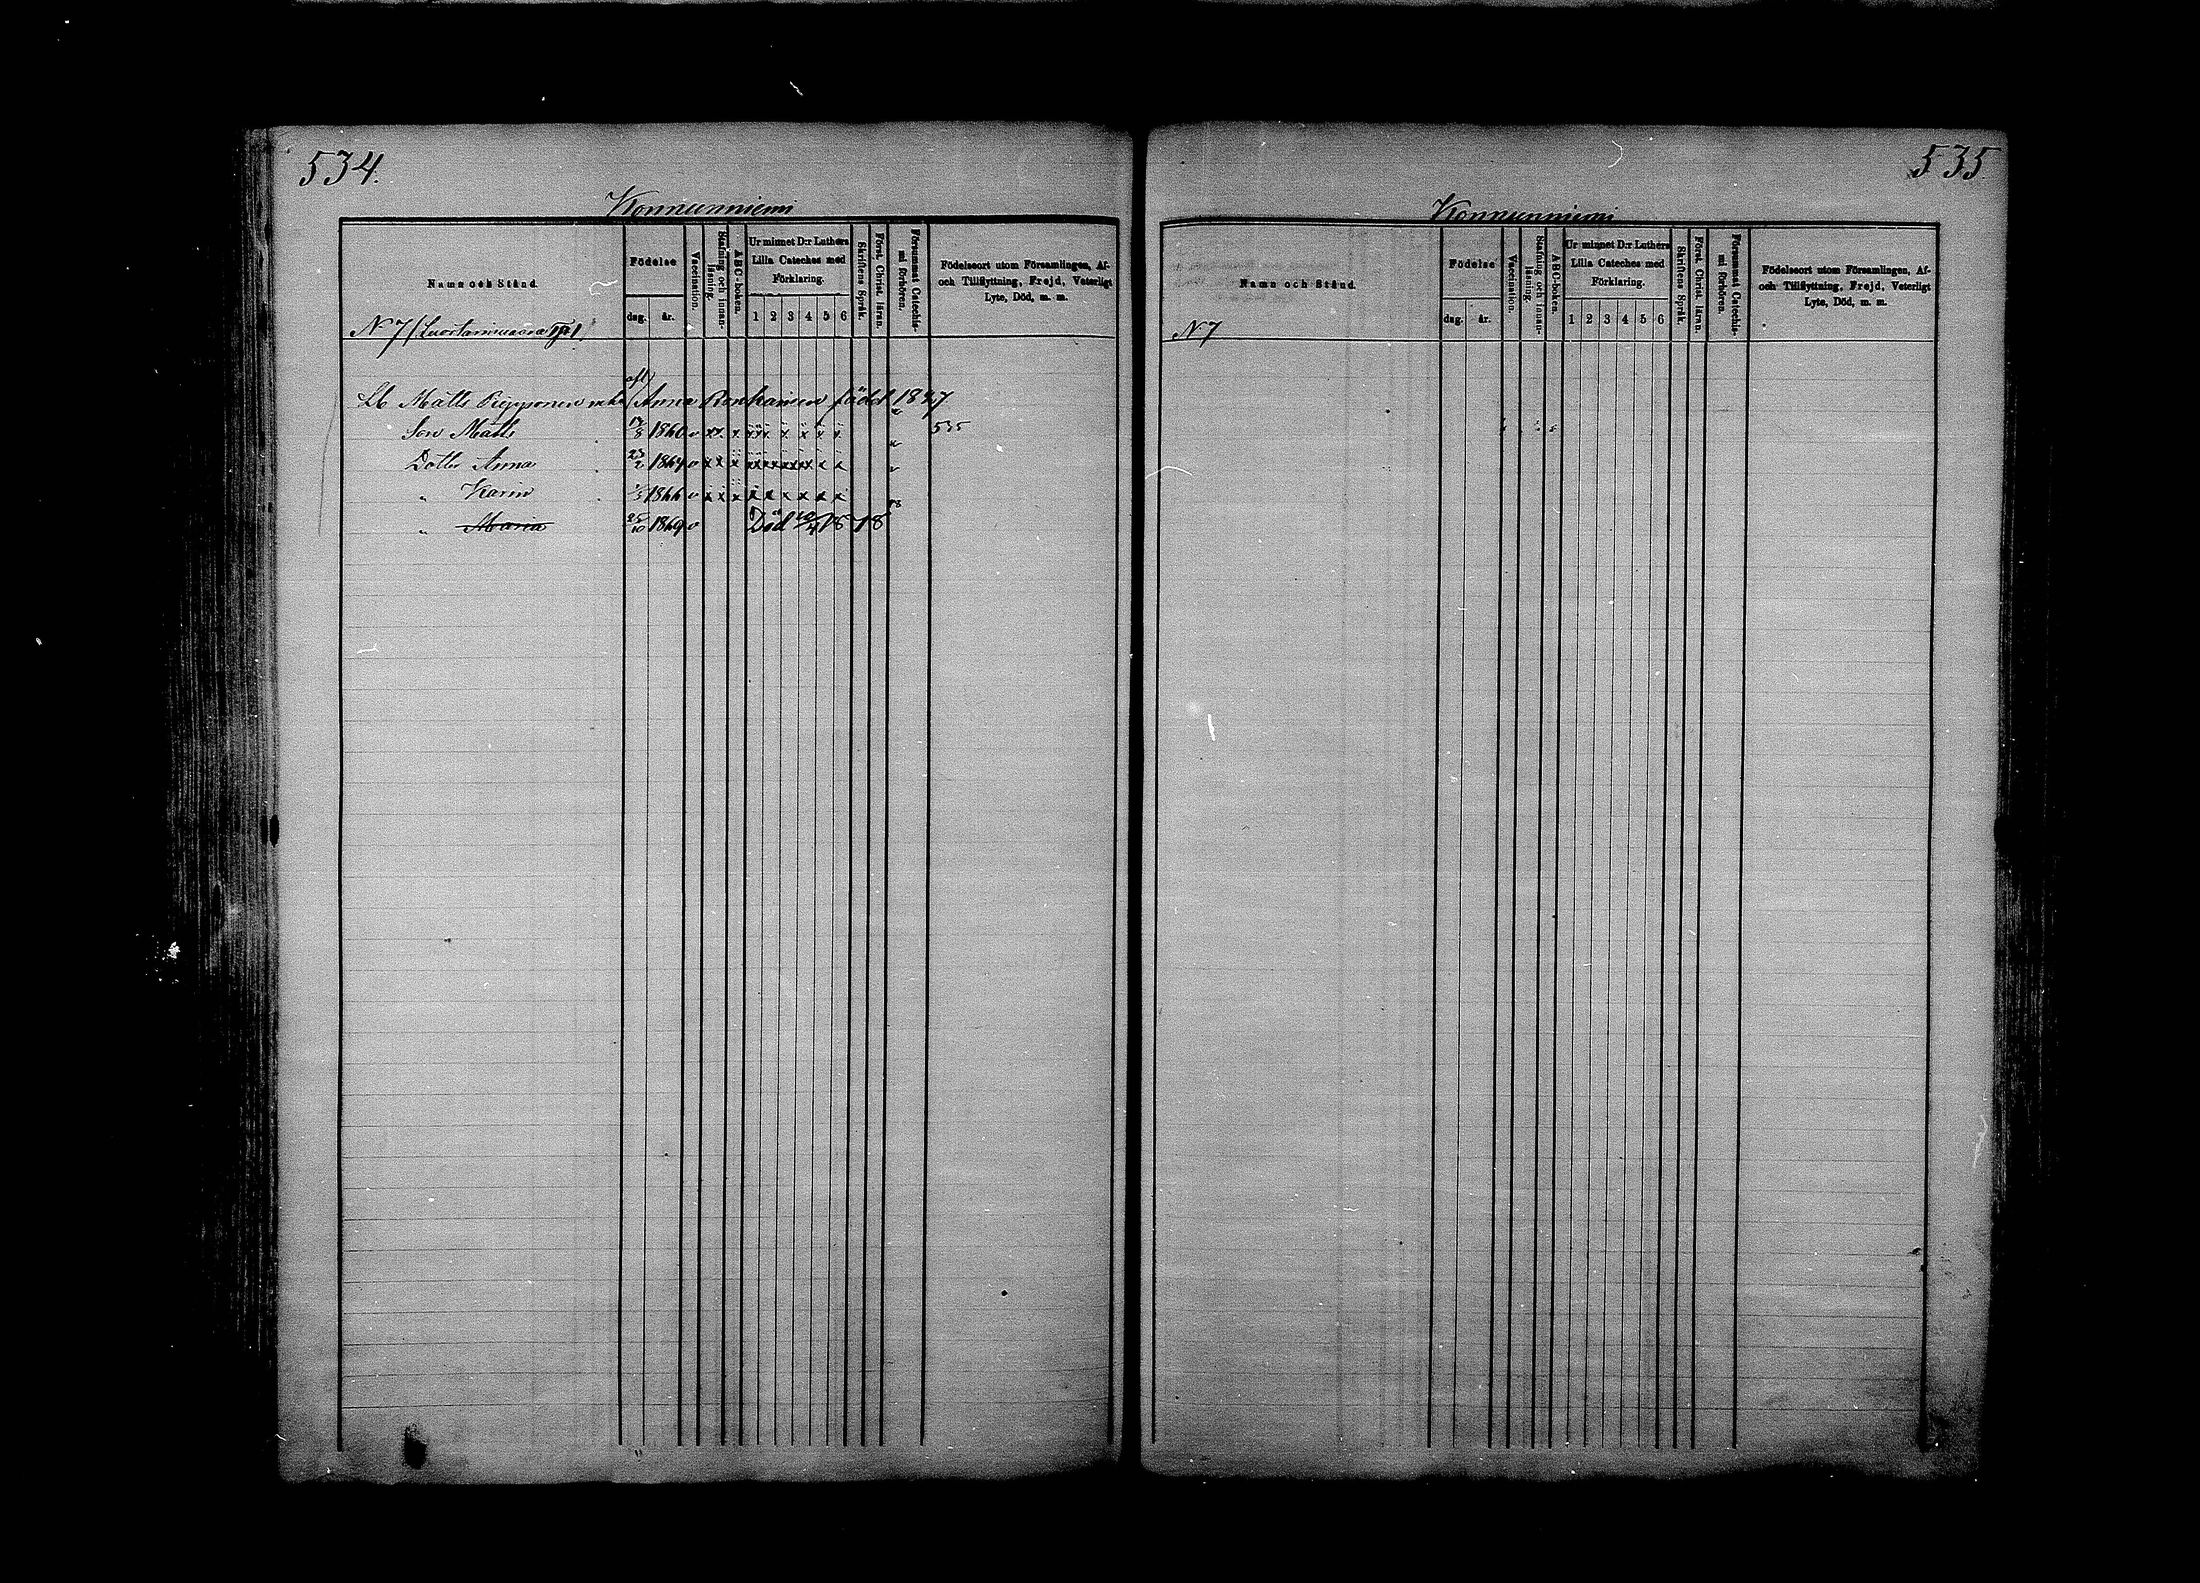 534.
Konnunniemi
Namn och Stånd.
Födelse
dag. år.
Vaccination.
Stafning och innanläsning.
ABC-boken.
Ur minnet D:r Luthers Lilla Cateches med Förklaring.
1 2 3 4 5 6
Skriftens Språk.
Först. Christ. läran.
Försummat Catechismi förhören.
Födelseort utom Församlingen, Af- och Tillflyttning, Frejd, Veterligt Lyte, Död, m. m.
N 7
Lb Matts Piipponen enka Anna Ronkainen född 1827
Son Matts 17/8 1860 v 535
Dotter Anna 23/2 1864 v
" Karin 1866 v
" Maria 25/10 1869 v Död 18 78
535
Konnunniemi
Namn och Stånd.
Födelse
dag. år.
Vaccination.
Stafning och innanläsning.
ABC-boken.
Ur minnet D:r Luthers Lilla Cateches med Förklaring.
1 2 3 4 5 6
Skriftens Språk.
Först. Christ. läran.
Försummat Catechismi förhören.
Födelseort utom Församlingen, Af- och Tillflyttning, Frejd, Veterligt Lyte, Död, m. m.
N 7